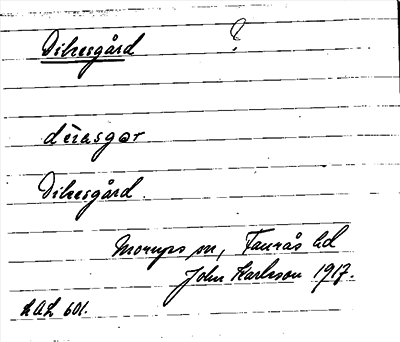 Dikesgård ?
dèιasgər
Dikesgård
Morups sn, Faurås hd
John Karlsson 1917.
LAL 601.